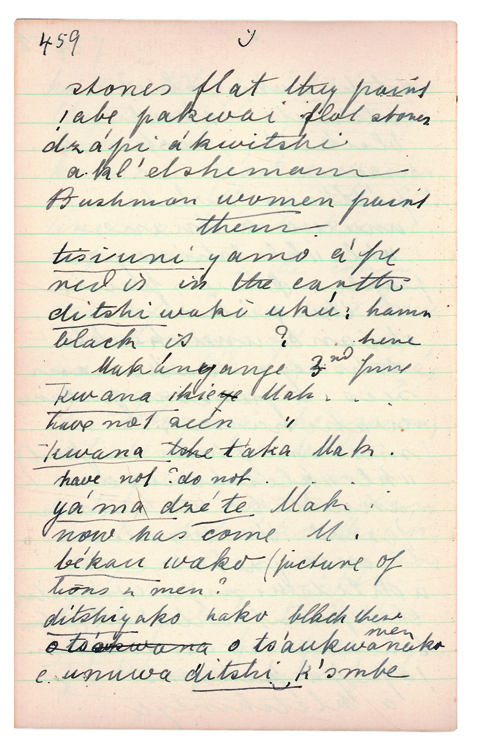 459
stones flat they paint
!abe pakwai flat stones
dzápi ákwitshi
a.kl'elshemam
Bushman women paint
them
tisiuni yamo á'pe
red is in the earth
ditshi wako ukú: hamn
black is ? here
Makányange 3rd June
Kwana ikieye Mak.
have not seen "
Kwana t'aka Mak.
have not ? do not.
yáma dzéte Mak.
now has come M.
békau wako (picture of
lions u men?
ditshiyako nako black there
o tó'aukwanako
men
e. unuwa ditshi k'smbe